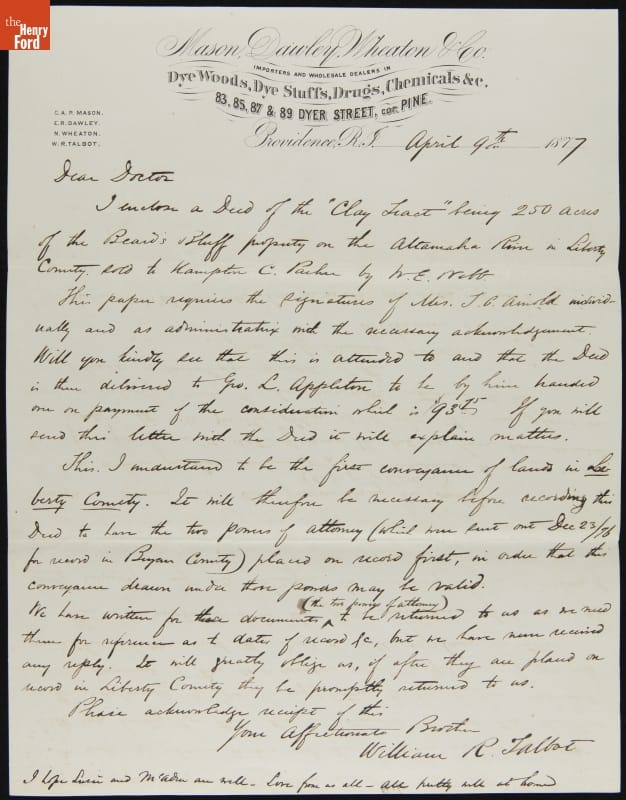 the
Henry
Ford
Mason, Dawley, Wheaton & Co.
IMPORTERS AND WHOLESALE DEALERS IN
Dye Woods, Dye Stuffs, Drugs, Chemicals &c.
83, 85, 87 & 89 DYER STREET, cor. PINE.
C. A. P. MASON.
E. R. DAWLEY.
N. WHEATON.
W. R. TALBOT.
Providence, R.I. April 9th 1877
Dear Doctor
I enclose a Deed of the "Clay Tract" being 250 acres
of the Beards Bluff property on the Altamaha River in Liberty
County. sold to Hampton C. Parker by W. E. Webb.
This paper requires the signatures of Mrs. L. C. Arnold individ-
ually and as administratrix with the necessary acknowledgement.
Will you kindly see that this is attended to and that the Deed
is then delivered to Geo. L. Appleton to be by him handed
over on payment of the consideration which is $93 75 If you will
send this letter with the Deed it will explain matters.
This. I understand to be the first conveyance of lands in Li-
berty County. It will therefore be necessary before recording this
Deed to have the two powers of attorney (which were sent out Dec 23/76
for record in Bryan County) placed on record first, in order that this
conveyance drawn under those powers may be valid.
(the two powers of attorney)
We have written for these documents, to be returned to us as we need
them for reference as to dates of record &c, but we have never received
any reply. It will greatly oblige us, if after they are placed on
record in Liberty County they be promptly returned to us.
Please acknowledge receipt of this
Your Affectionate Brother
William R. Talbot
I hope and are well - Love from us all - all pretty well at home